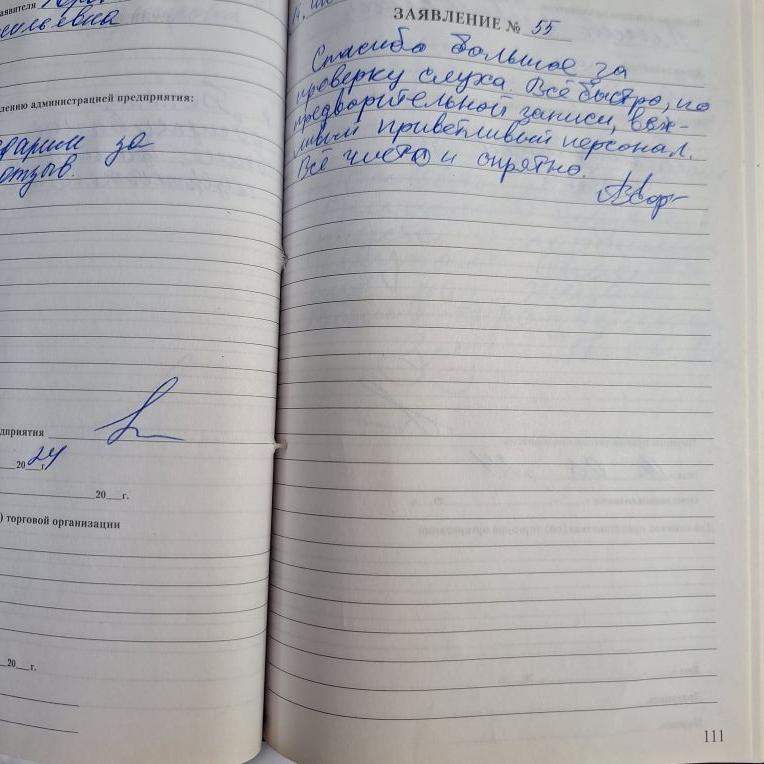 заявителя
сильевна
лению администрацией предприятия:
дарим за
отзыв.
дприятия
20 24 г.
20 г.
) торговой организации
20 г.
ЗАЯВЛЕНИЕ № 55
Спасибо большое за
проверку слуха. Всё быстро, по
предворительной записи, веж-
ливый приветливый персонал.
Все чисто и опрятно.
111